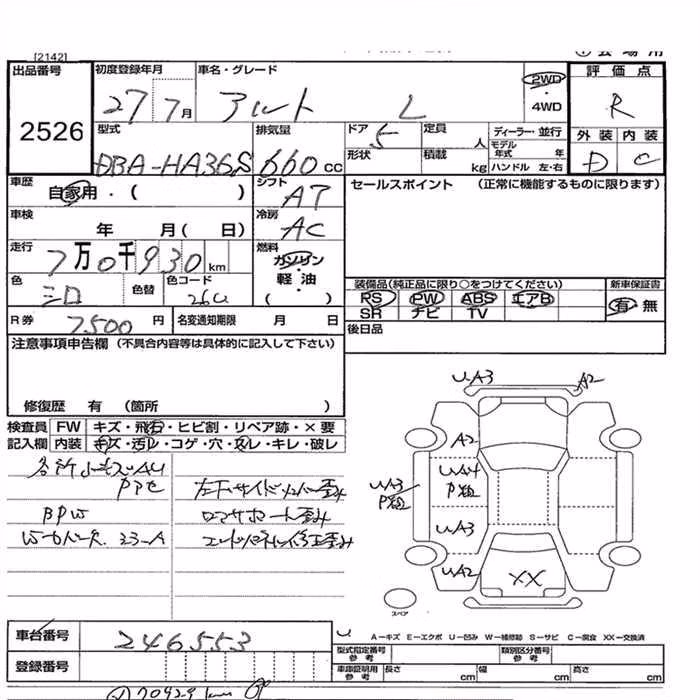 [2142]
出品番号 初度登録年月 車名・グレード 評価点
2526 27 7月 アルト L 2WD ・ 4WD R
外装 内装
型式 排気量 ドア 定員 人 ディーラー・並行
DBA-HA36S 660cc 5 モデル年式 年 D C
形状 積載 kg ハンドル 左・右
車歴 自家用・( ) シフト AT セールスポイント (正常に機能するものに限ります)
車検 年 月( 日) 冷房 AC
走行 7万0千930km 燃料 ガソリン・軽油 ( )
色 シロ 色替 色コード 26U 装備品(純正品に限り○をつけてください) 新車保証書
PS PW ABS エアB 有・無
SR ナビ TV
R券 7500円 名変通知期限 月 日 後日品
注意事項申告欄 (不具合内容等は具体的に記入して下さい)
修復歴 有 (箇所 )
検査員 FW キズ・飛石・ヒビ割・リペア跡・×要
記入欄 内装 キズ・汚レ・コゲ・穴・スレ・キレ・破レ
各所小キズAU
左F サイドメンバー歪み
BPW コアサポート歪み
Wカバー欠 23-A エンドパネル修正歪み
U・A3 A2
A2
UA3 P粗 UA4 P粗
UA3
UA2 XX
スペア
車台番号 246553
A−キズ E−エクボ U−凹み W−補修跡 S−サビ C−腐食 XX−交換済
登録番号 型式指定番号 参考 類別区分番号 参考
車庫証明用 参考 長さ cm 幅 cm 高さ cm
70929km